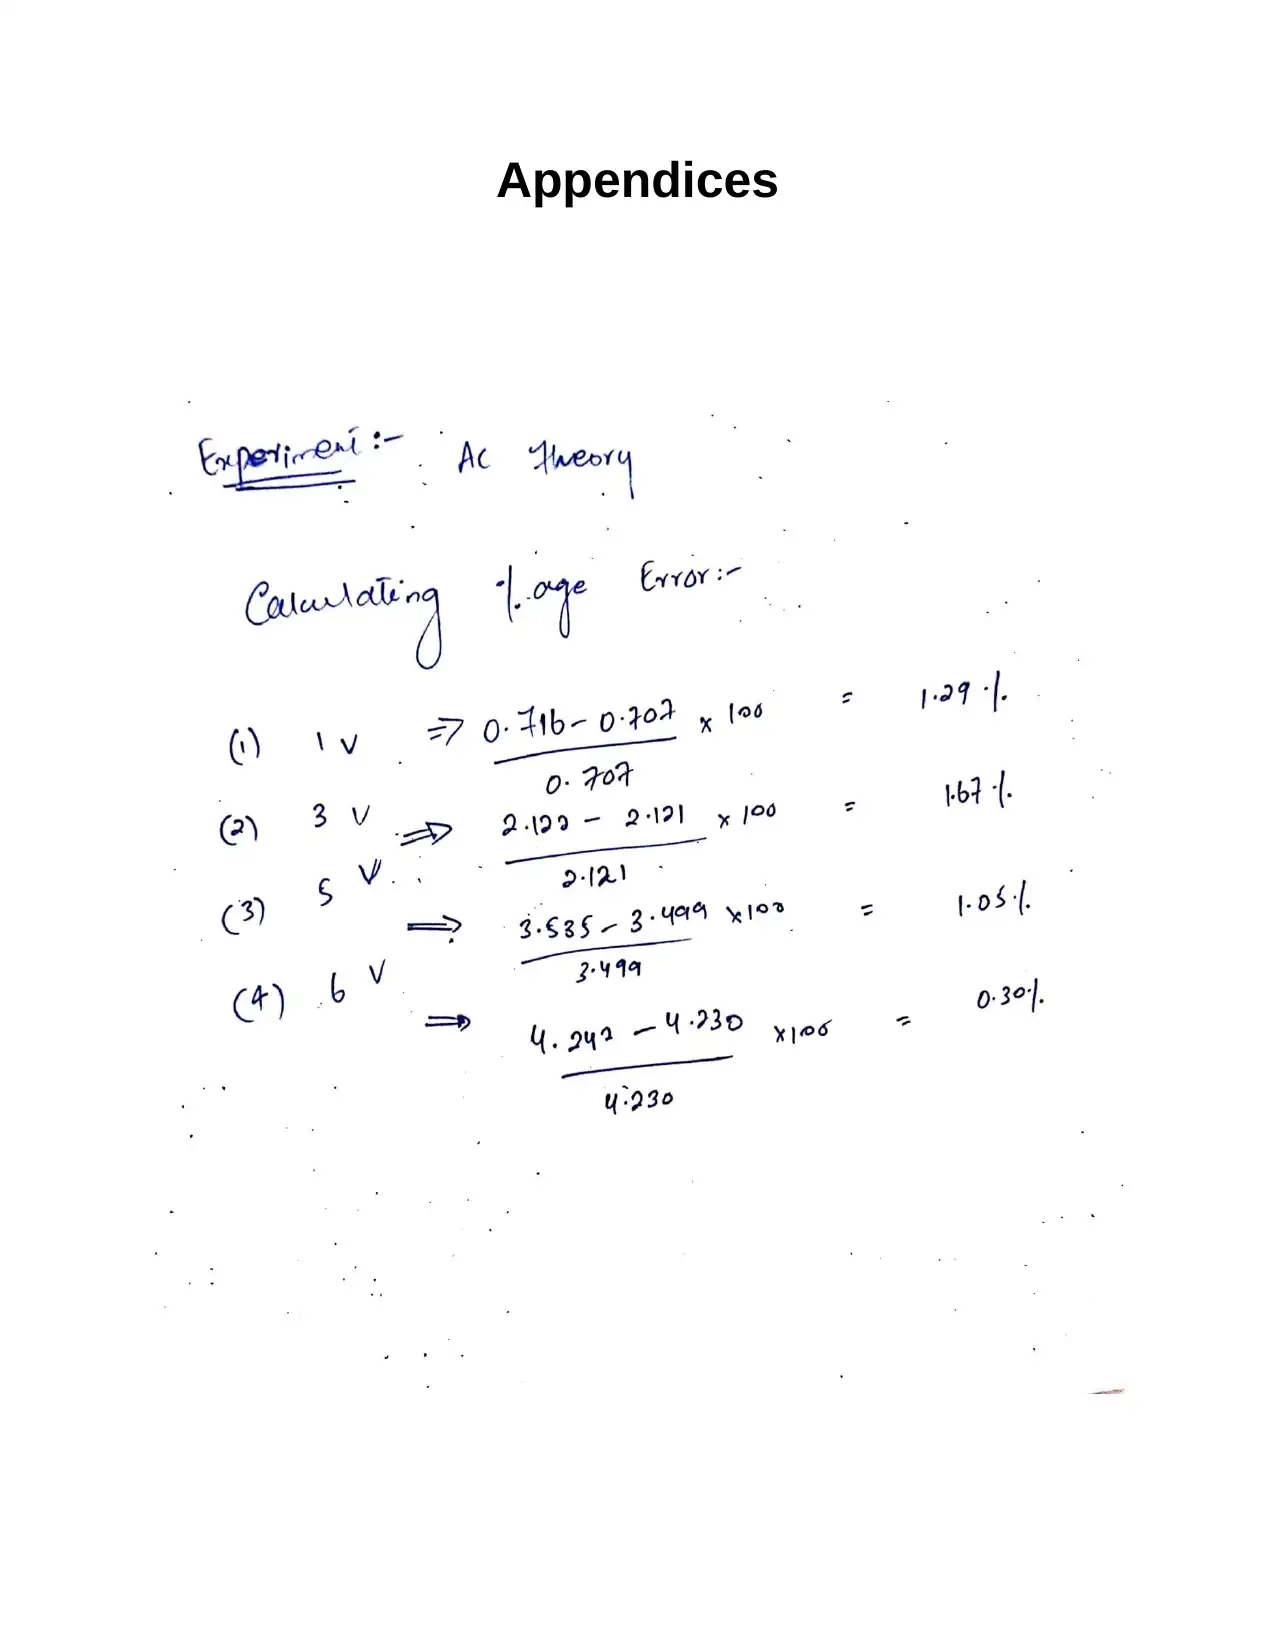 Appendices
Experiment:- AC Theory
Calculating %age Error:-
(1) 1 V ⇒ 0.716 - 0.707 × 100 = 1.29 %
0.707
(2) 3 V ⇒ 2.122 - 2.121 × 100 = 1.67 %
2.121
(3) 5 V ⇒ 3.535 - 3.499 × 100 = 1.05 %
3.499
(4) 6 V ⇒ 4.242 - 4.230 × 100 = 0.30 %
4.230